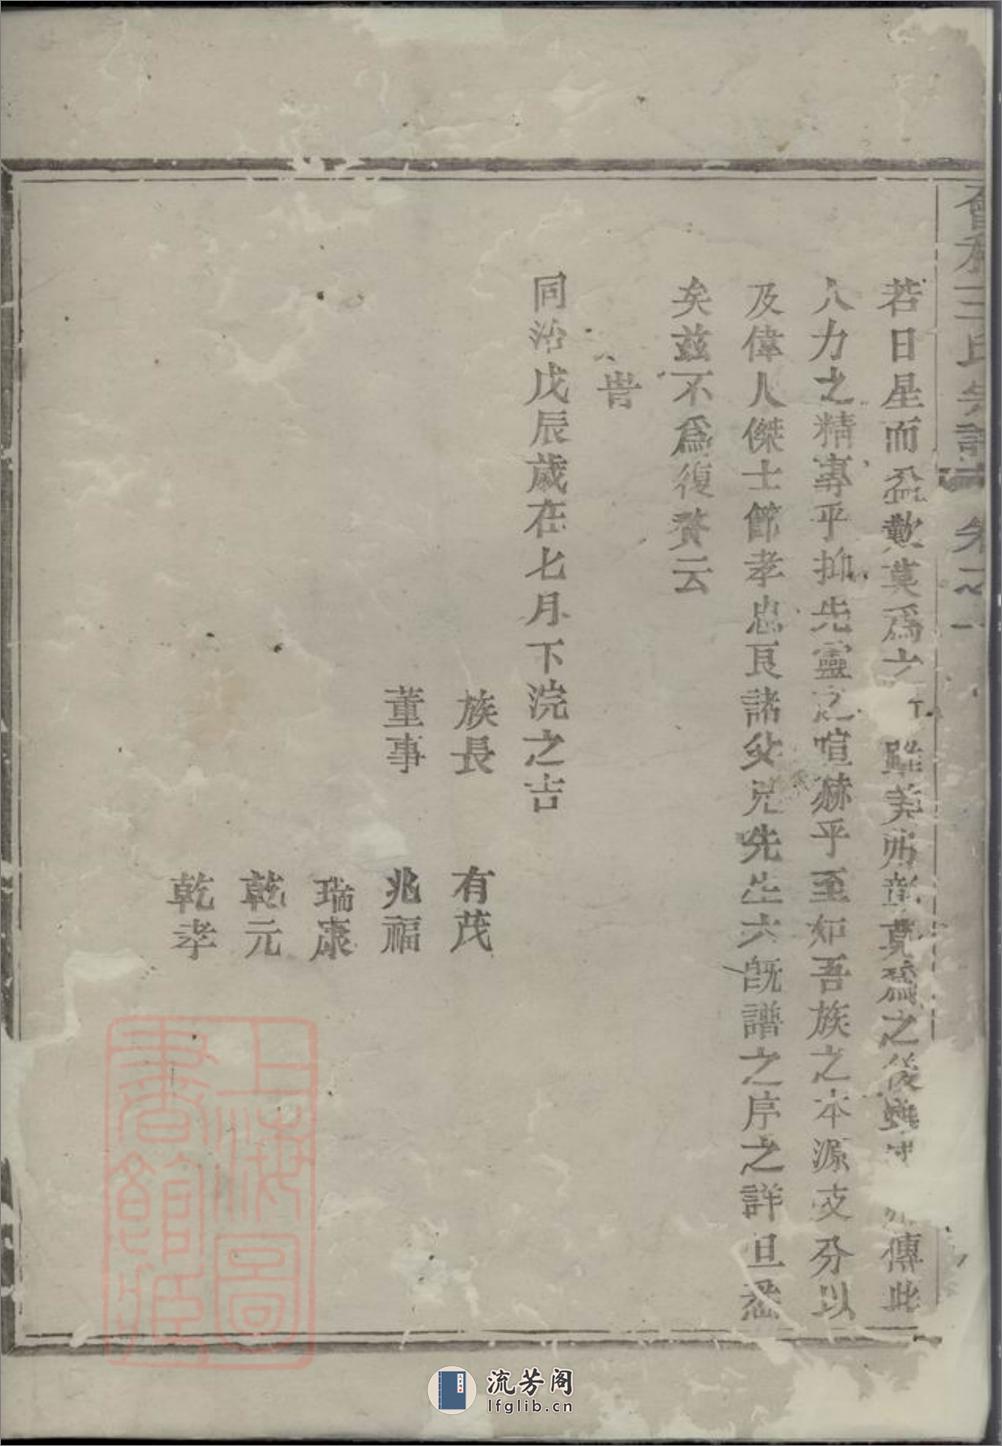 會稽王氏宗譜 卷之一
若日星而盈歉莫爲之 雖美弗彰莫爲之後雖 傳此
人力之精專乎抑先靈之喧赫乎至如吾族之本源支分以
及偉人傑士節孝忠良諸父兄先生六旣譜之序之詳且悉
矣茲不爲復贅云
旹
同治戊辰歲在七月下浣之吉
族長 有茂
董事 兆福
瑞康
乾元
乾孝
上海圖
書館藏
流芳阁
lfglib.cn